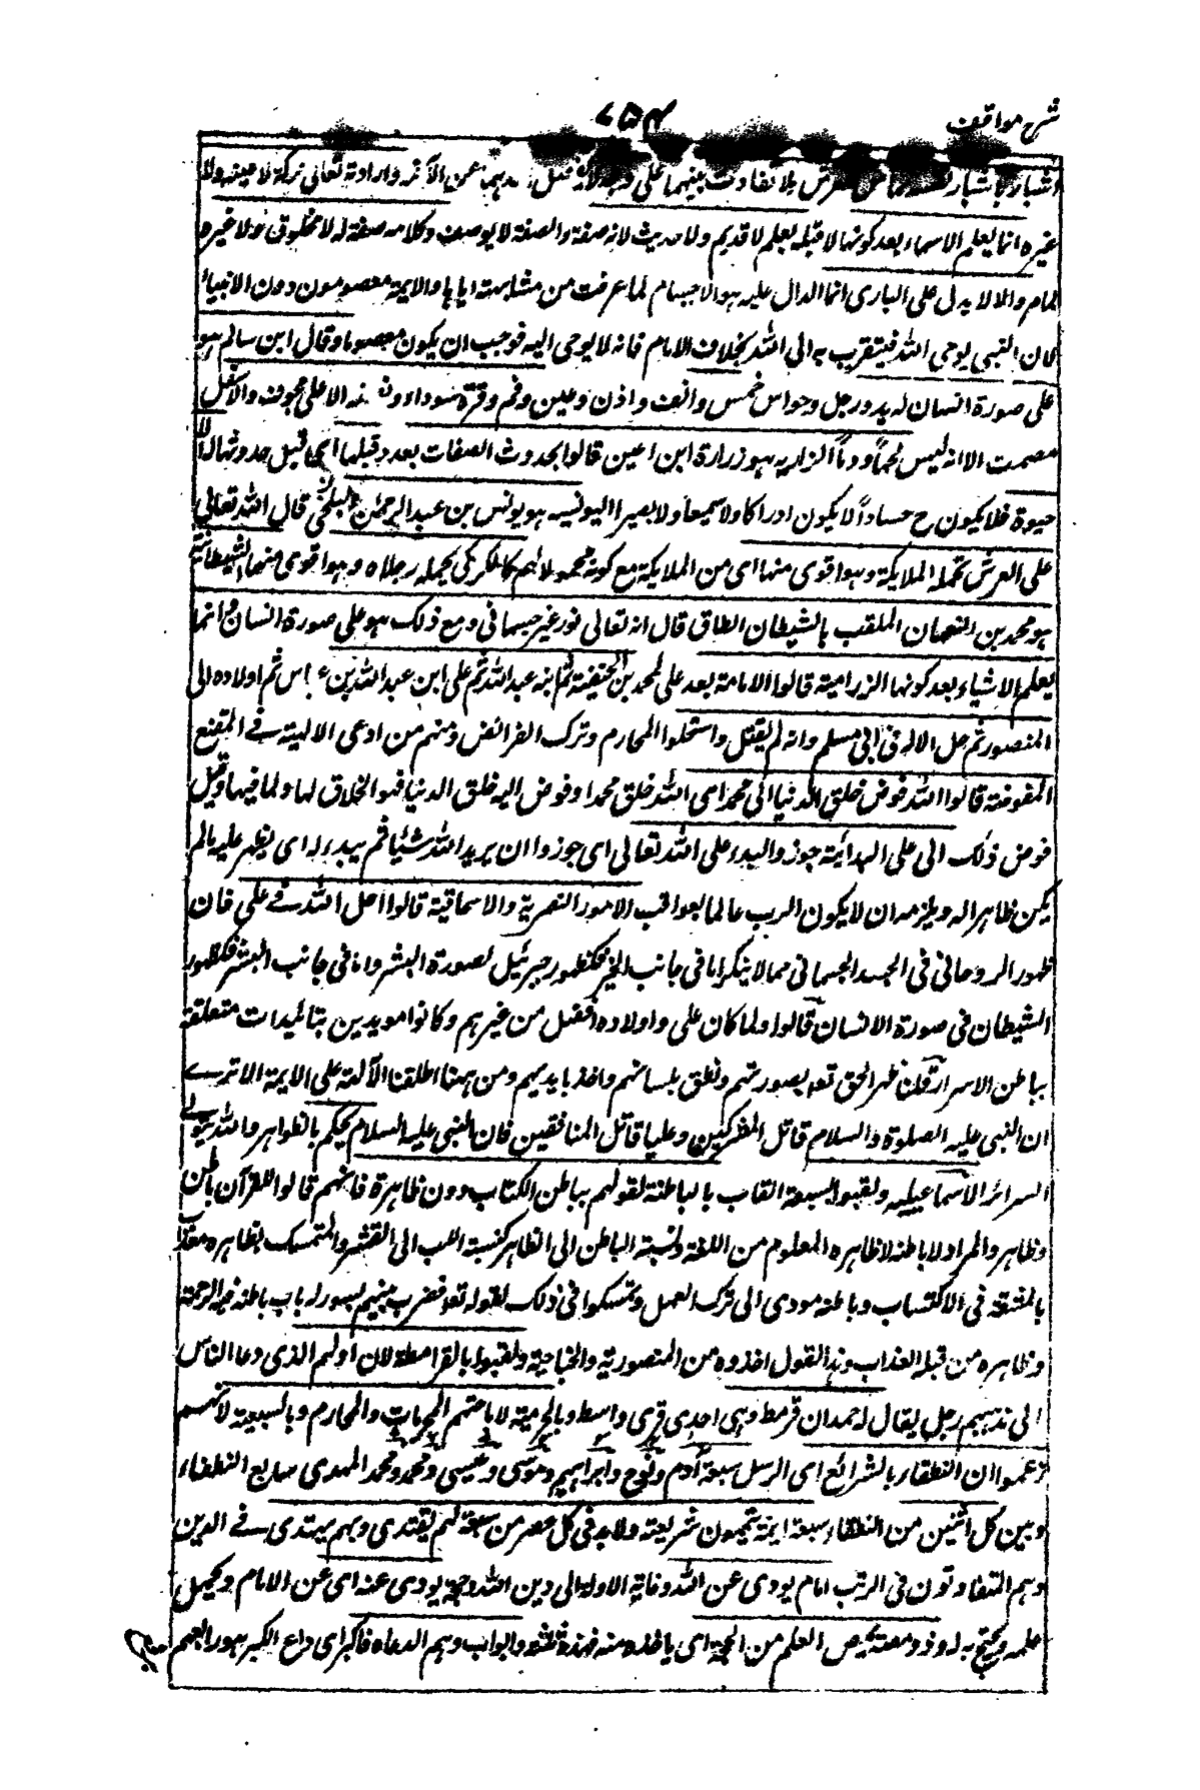 شرح مواقف
۷۵۴
اشبار باشبار نفسه مماس للعرش بلا تفاوت بينهما على وجه لا يفضل احدهما عن الآخر وارادته تعالى حركة لا عينه ولا
غيره انما يعلم الاسماء بعد كونها لا قبله بعلم لا قديم ولا حديث لانه صفة والصفة لا يوصف وكلامه صفة له لا مخلوق ولا غيره
لمام والا لا يدل على البارى انما الدال عليه هو الاجسام لما عرفت من مشابهته اياها والايمة معصومون دون الانبياء
لان النبى يوحى اللّه فيتقرب به الى اللّه بخلاف الامام فانه لا يوحى اليه فوجب ان يكون معصوما وقال ابن سالم هو
على صورة انسان له يد ورجل وحواس خمس وانف واذن وعين وفم وقرة سوداء ونصفه الاعلى مجوف والاسفل
مصمت الا انه ليس لحماً ودماً الزاريه هو زرارة ابن اعين قالوا بحدوث الصفات بعد وقبلها اى قبل حدوثها له لا
حيوة فلا يكون ح حساداً لا يكون ادراكا ولا سميعا ولا بصيرا اليونسيه هو يونس بن عبد الرحمن البلخى قال اللّه تعالى
على العرش تحمله الملايكة وهو اقوى منها اى من الملايكة مع كونه محمولا لهم كالكركى يحمله رجلاه وهو اقوى منها الشيطانية
هو محمد بن النعمان الملقب بالشيطان الطاق قال انه تعالى نور غير جسمانى ومع ذلك هو على صورة انسان وانما
يعلم الاشياء بعد كونها الزراميته قالوا الامامة بعد على لمحمد بن الحنيفة ثم ابنه عبد اللّه ثم على ابن عبد اللّه بن عباس ثم اولاده الى
المنصور ثم حل الاله فى ابى مسلم وانه لم يقتل واستحلوا المحارم وترك الفرائض ومنهم من ادعى الالهية فى المقنع
المفوضة قالوا اللّه فوض خلق الدنيا الى محمد اى اللّه خلق محمدا وفوض اليه خلق الدنيا فهو الخلاق لها ولما فيها وقيل
فوض ذلك الى على البدائية جوزوا البدء على اللّه تعالى اى جوزوا ان يريد اللّه شيئا ثم يبدء له اى يظهر عليه مالم
يكن ظاهرا له ويلزمه ان لا يكون الرب عالما بعواقب الامور النصرية والاسحاقية قالوا حل اللّه فى على فان
ظهور الروحانى فى الجسد الجسمانى مما لا ينكر اما فى جانب الخير فكظهور جبرئيل بصورة البشر واما فى جانب الشر فكظهور
الشيطان فى صورة الانسان قالوا ولما كان على واولاده افضل من غيرهم وكانوا مويدين بتائيدات متعلقة
بباطن الاسرار قلنا ظهر الحق تعه بصورتهم ونطق بلسانهم واخذ بايديهم ومن ههنا اطلقنا الآلهة على الايمة الا ترے
ان النبى عليه الصلوة والسلام قاتل المشركين وعليا قاتل المنافقين فان النبى عليه السلام يحكم بالظواهر واللّه يتولى
السرائر الاسماعيليه ولقبوا بسبعة القاب بالباطنة لقولهم بباطن الكتاب دون ظاهرة فانهم قالوا للقرآن باطن
وظاهر والمراد لا باطنه لا ظاهره المعلوم من اللغة ونسبة الباطن الى الظاهر كنسبة اللب الى القشر والمتمسك بظاهره معذب
بالمشقة فى الاكتساب وباطنه مودى الى ترك العمل وتمسكوا فى ذلك لقوله تعه فضرب بينهم بسور له باب باطنه فيه الرحمة
وظاهره من قبله العذاب وهذا القول اخذوه من المنصورية والجناحية ولقبوا بالقرامطة لان اولهم الذى دعا الناس
الى مذهبهم رجل يقال له حمدان قرمط وهى احدى قرى واسط وبالحرمية لاباحتهم المحرمات والمحارم وبالسبعية لانهم
زعموا ان النطقاء بالشرائع اى الرسل سبعة آدم ونوح وابراهيم وموسى وعيسى ومحمد ومحمد المهدى سابع النطقاء
وبين كل اثنين من النطقاء سبعة ايمة يتممون شريعته ولابد فى كل عصر من سبعة لهم يقتدى وبهم يهتدى فى الدين
وهم المتفاوتون فى الرتب امام يودى عن اللّه وغاية الاولة الى دين اللّه وحجة يودى عنه اى عن الامام ويحمل
علمه ويحتج به له وذو معته يمص العلم من الحجة اى ياخذه منه فهذه ثلثة وابواب وهم الدعاة فاكبر اى داع اكبر هو رابعهم